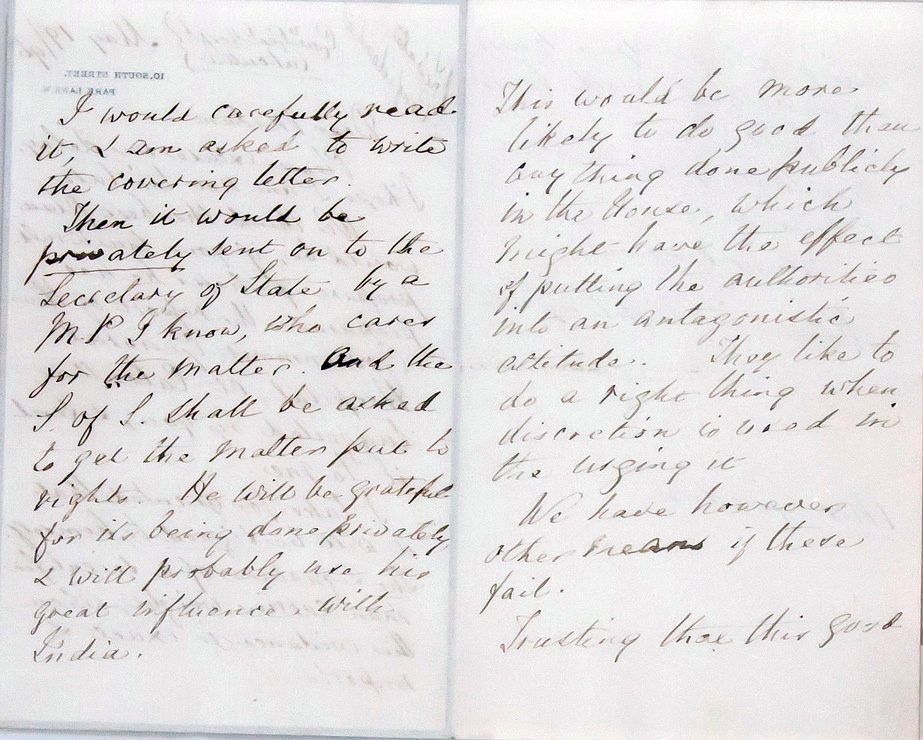 10, SOUTH STREET,
PARK LANE. W.
I would carefully read
it, I am asked to write
the covering letter.
Then it would be
privately sent on to the
Secretary of State by a
M P I know, who cares
for the matter. And the
S of S. shall be asked
to get the matter put to
rights. He will be grateful
for its being done privately
& will probably use his
great influence with
India.
This would be more
likely to do good than
any thing done publicly
in the House, which
might have the effect
of putting the authorities
into an antagonistic
attitude. They like to
do a right thing when
discretion is used in
the urging it
We have however
other means if these
fail.
Trusting that this good